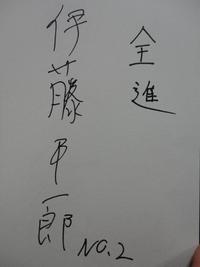 全進
伊藤甲一郎
NO.2